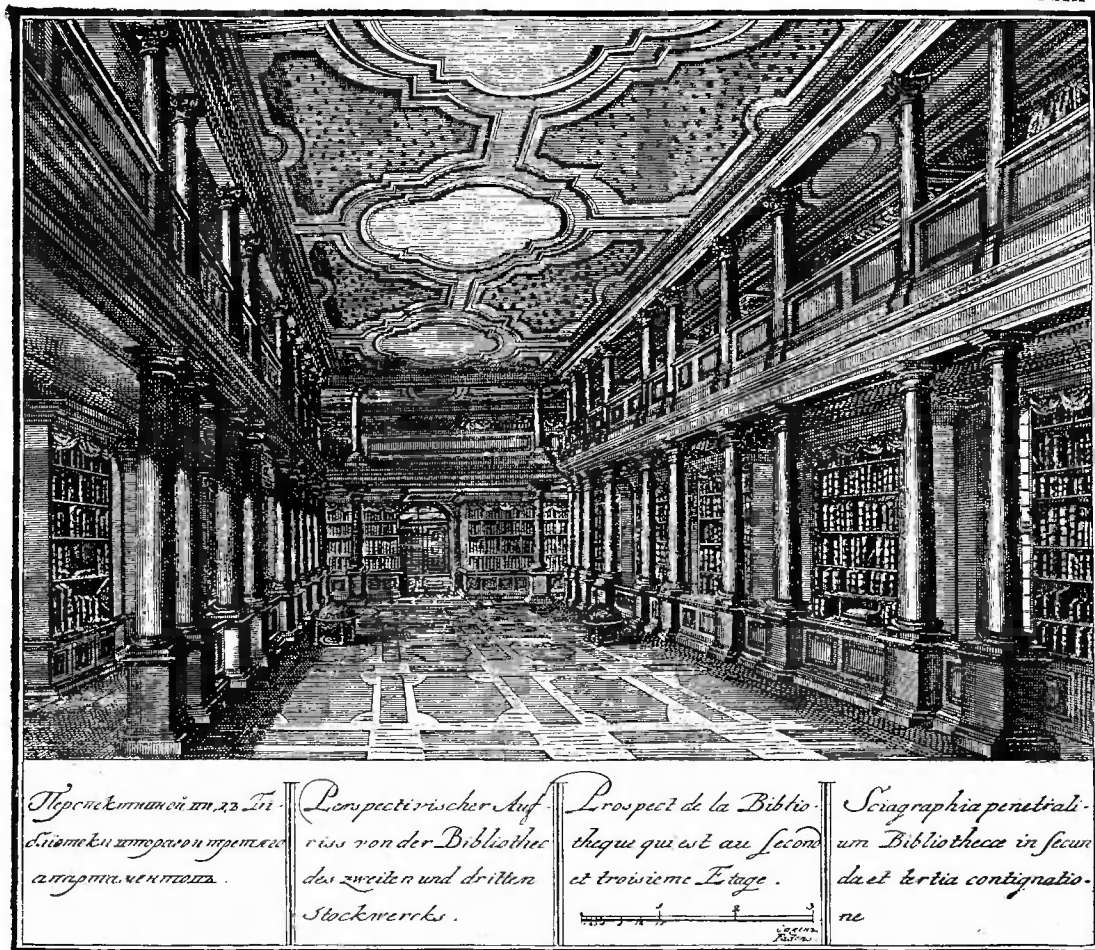 Перспективной видъ Би-
блiотеки второго и третяго
апартаментовъ.
Perspectivischer Auf-
riss von der Bibliothec
des zweiten und dritten
Stockwercks.
Prospect de la Biblio-
theque qui est au second
et troisieme Etage.
Sciagraphia penetrali-
um Bibliothecæ in secun
da et tertia contignatio-
ne